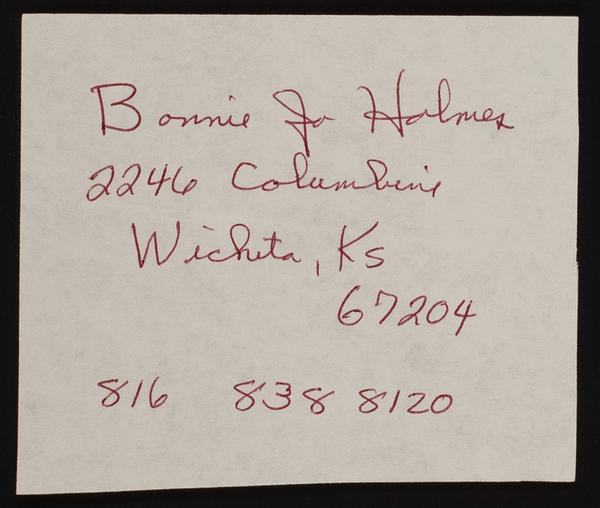 Bonnie Jo Holmes
2246 Columbine
Wichita, Ks
67204
816 838 8120